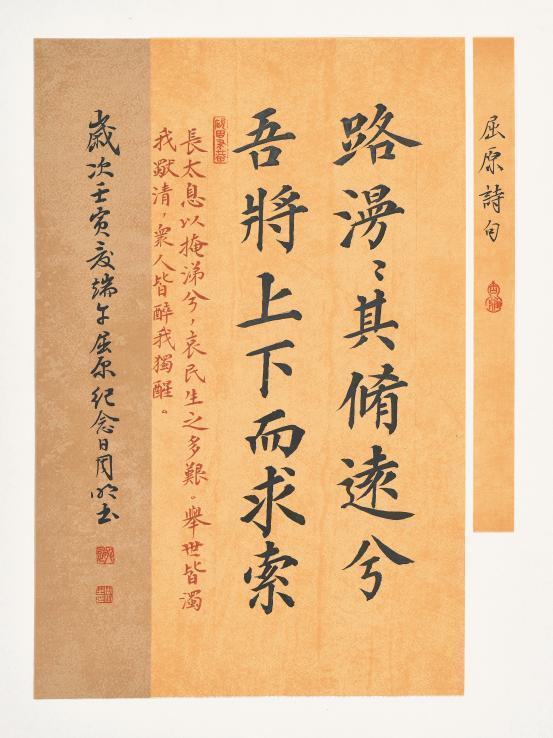 屈原詩句
路漫〻其脩遠兮
吾將上下而求索
長太息以掩涕兮,哀民生之多艱。舉世皆濁
我獨清,衆人皆醉我獨醒。
歲次壬寅夏端午屈原紀念日周明书